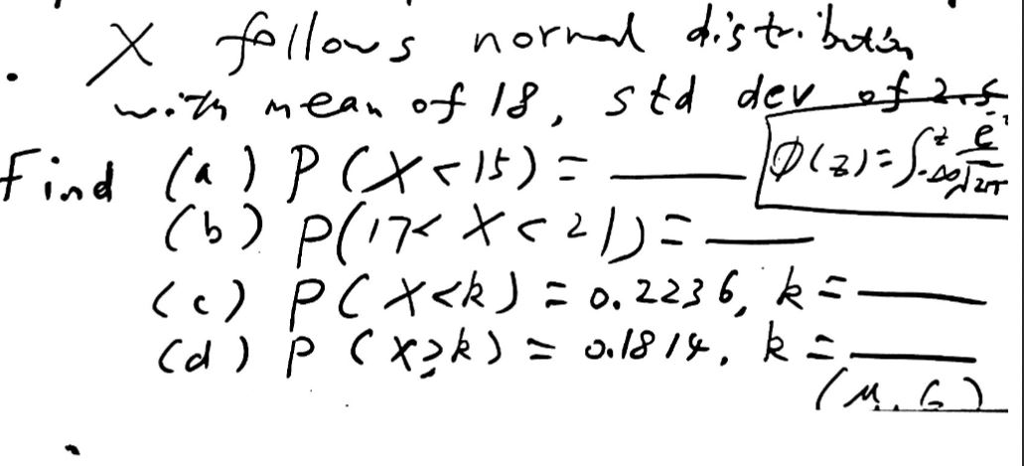 X follows normal distribution
with mean of 18, std dev of 2.5
Find (a) P(X<15) = ____ Φ(z) = ∫_{-∞}^{z} e / √2π
(b) P(17< X < 21) = ____
(c) P(X<k) = 0.2236, k = ____
(d) P(X≥k) = 0.1814, k = ____
(μ, σ)